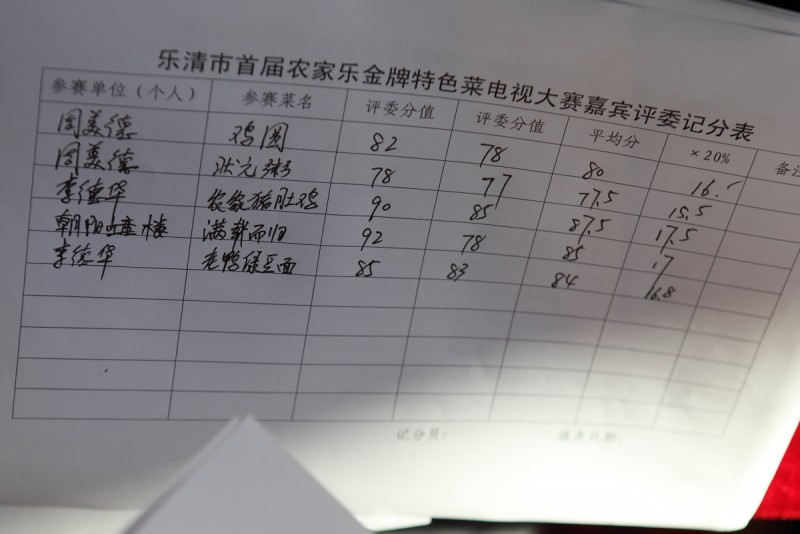 乐清市首届农家乐金牌特色菜电视大赛嘉宾评委记分表
参赛单位（个人） 参赛菜名 评委分值 评委分值 平均分 ×20% 备注
周美德 鸡圆 82 78 80 16
周美德 状元粥 78 77 77.5 15.5
李德华 农家猪肚鸡 90 85 87.5 17.5
朝阳山庄楼 满载而归 92 78 85 17
李德华 老鸭绿豆面 85 83 84 16.8
记分员：